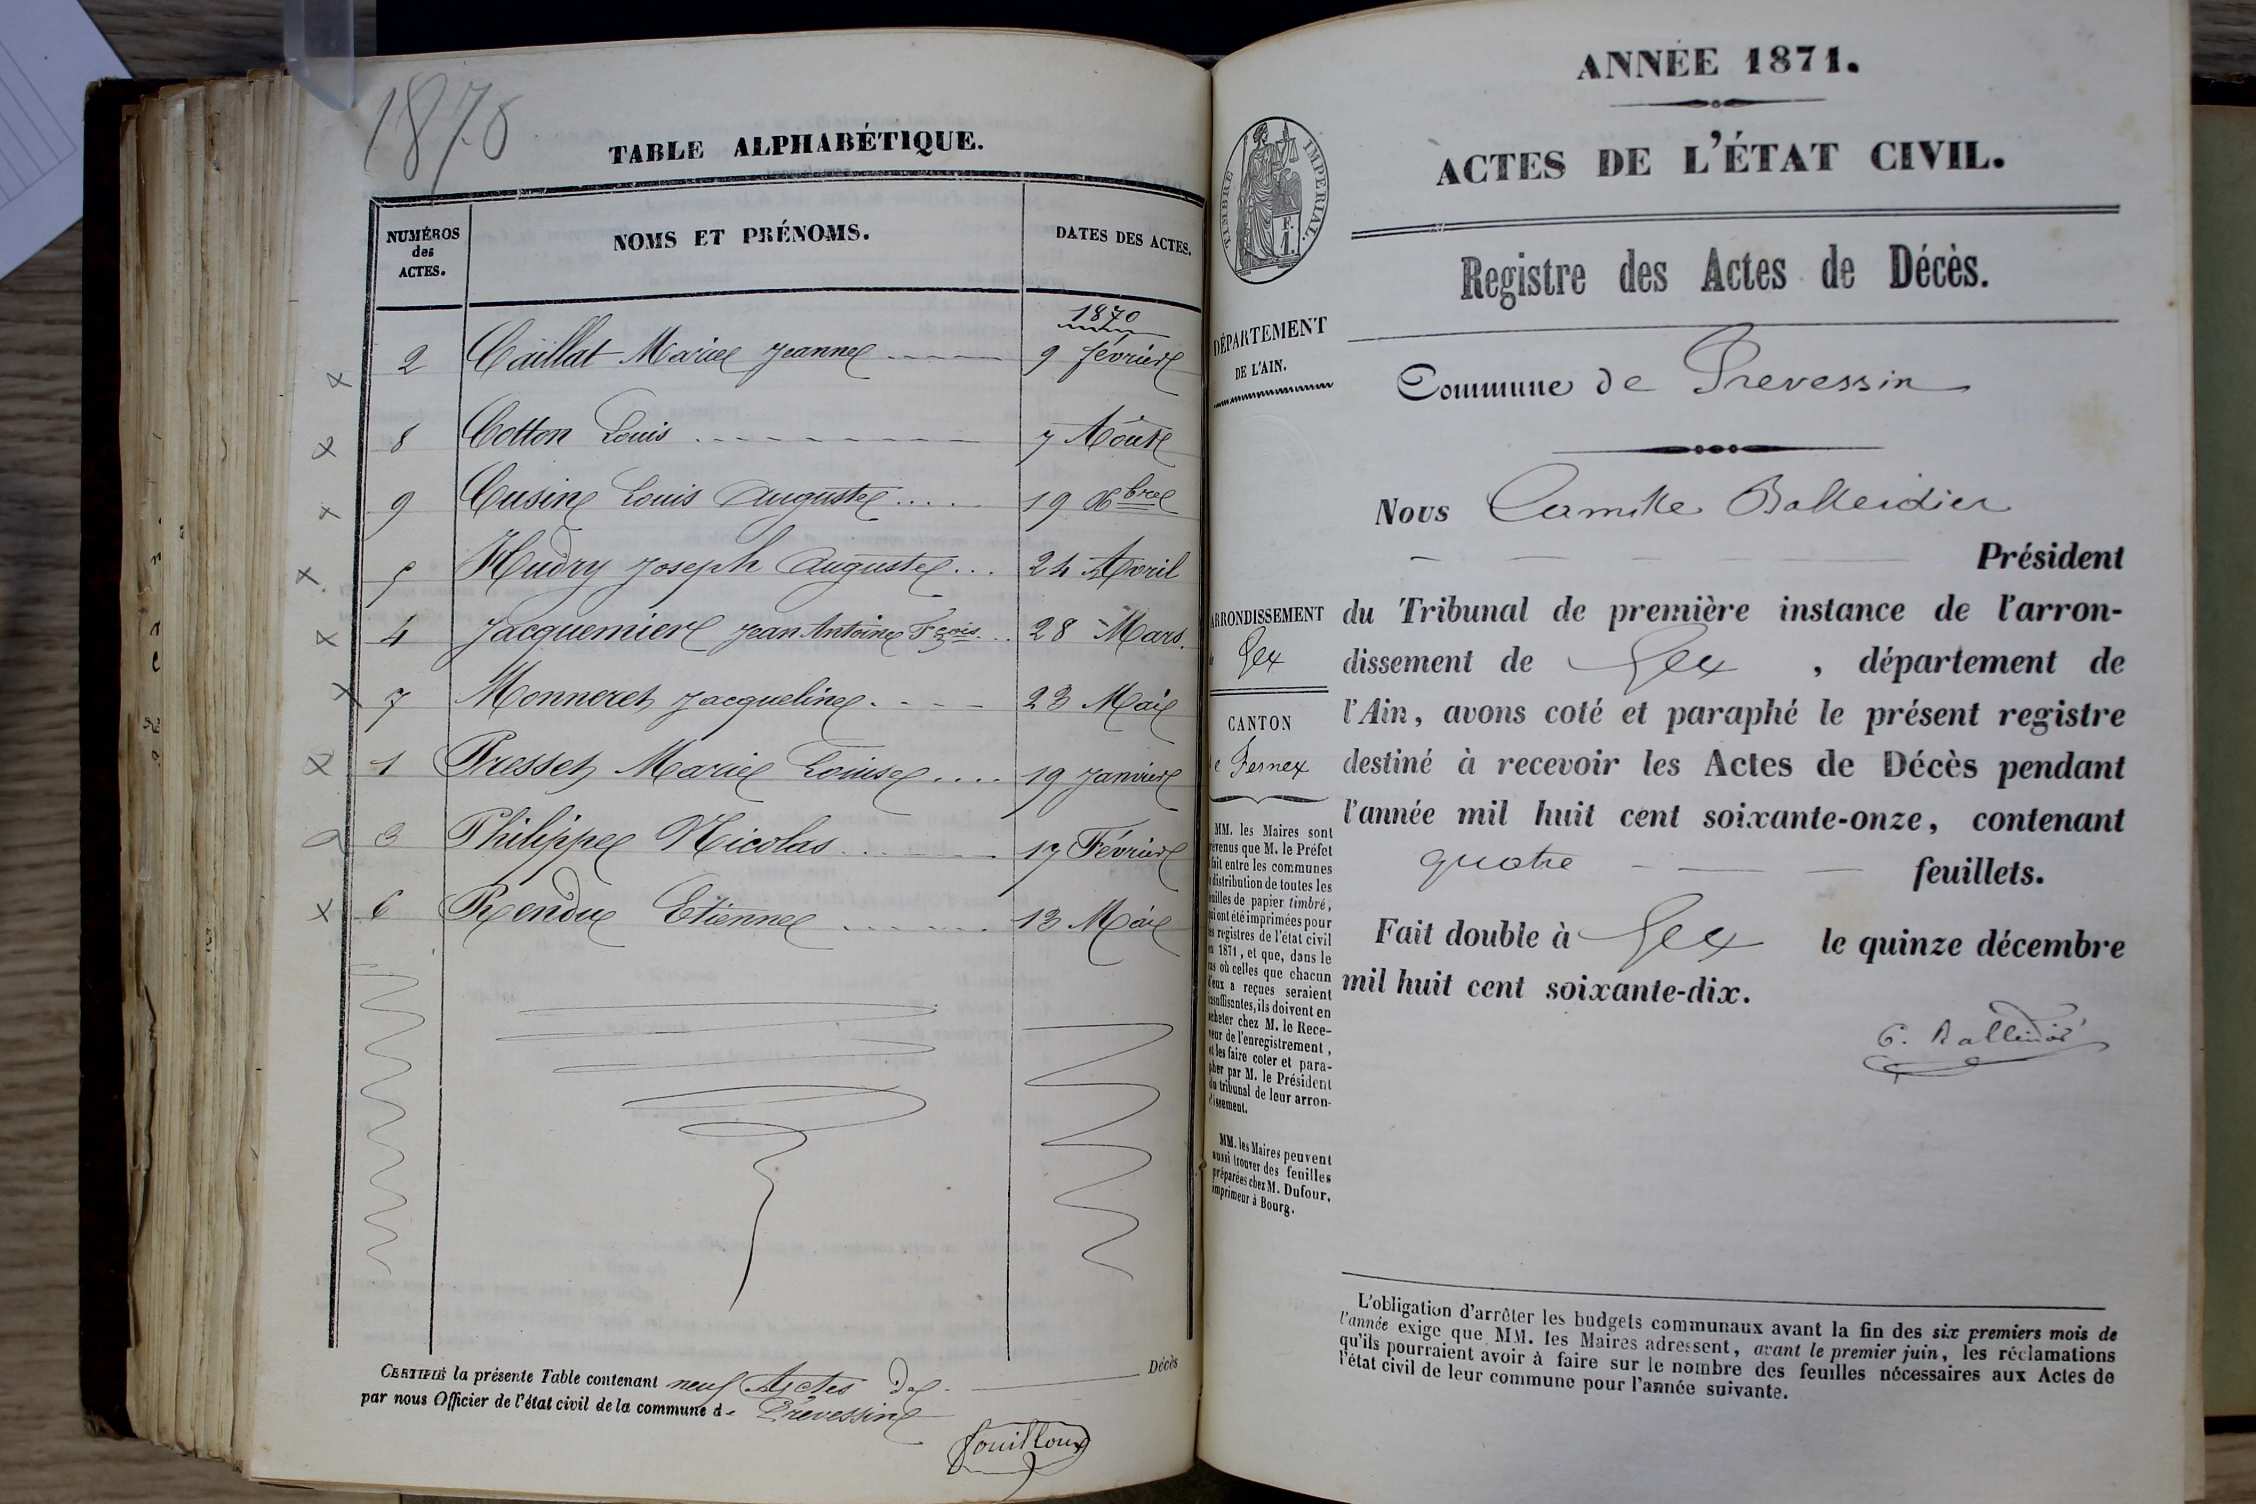 1870
TABLE ALPHABÉTIQUE.
NUMÉROS des ACTES. NOMS ET PRÉNOMS. DATES DES ACTES.
1870
2 Caillat Marie Jeanne 9 février
8 Cotton Louis 7 Août
9 Cusin Louis Auguste 19 Xbre
5 Hudry Joseph Auguste 24 Avril
4 Jacquemier Jean Antoine Fçois 28 Mars.
7 Monneret Jacqueline 23 Mai
1 Presset Marie Louise 19 Janvier
3 Philippe Nicolas 17 Février
6 Rendu Etienne 13 Mai
CERTIFIÉ la présente Table contenant neuf Actes de Décès
par nous Officier de l'état civil de la commune de Prévessin
Fouilloux
ANNÉE 1871.
ACTES DE L'ÉTAT CIVIL.
TIMBRE IMPÉRIAL.
F.
1.
Registre des Actes de Décès.
DÉPARTEMENT
DE L'AIN.
Commune de Prevessin
Nous Camille Balleidier
Président
du Tribunal de première instance de l'arron-
dissement de Gex, département de
l'Ain, avons coté et paraphé le présent registre
destiné à recevoir les Actes de Décès pendant
l'année mil huit cent soixante-onze, contenant
quatre feuillets.
Fait double à Gex le quinze décembre
mil huit cent soixante-dix.
C. Balleidier
ARRONDISSEMENT
Gex
CANTON
Fernex
MM. les Maires sont
prévenus que M. le Préfet
fait entre les communes
distribution de toutes les
feuilles de papier timbré,
qui ont été imprimées pour
les registres de l'état civil
en 1871, et que, dans le
cas où celles que chacun
d'eux a reçues seraient
insuffisantes, ils doivent en
acheter chez M. le Rece-
veur de l'enregistrement,
et les faire coter et para-
pher par M. le Président
du tribunal de leur arron-
dissement.
MM. les Maires peuvent
aussi trouver des feuilles
préparées chez M. Dufour,
imprimeur à Bourg.
L'obligation d'arrêter les budgets communaux avant la fin des six premiers mois de
l'année exige que MM. les Maires adressent, avant le premier juin, les réclamations
qu'ils pourraient avoir à faire sur le nombre des feuilles nécessaires aux Actes de
l'état civil de leur commune pour l'année suivante.